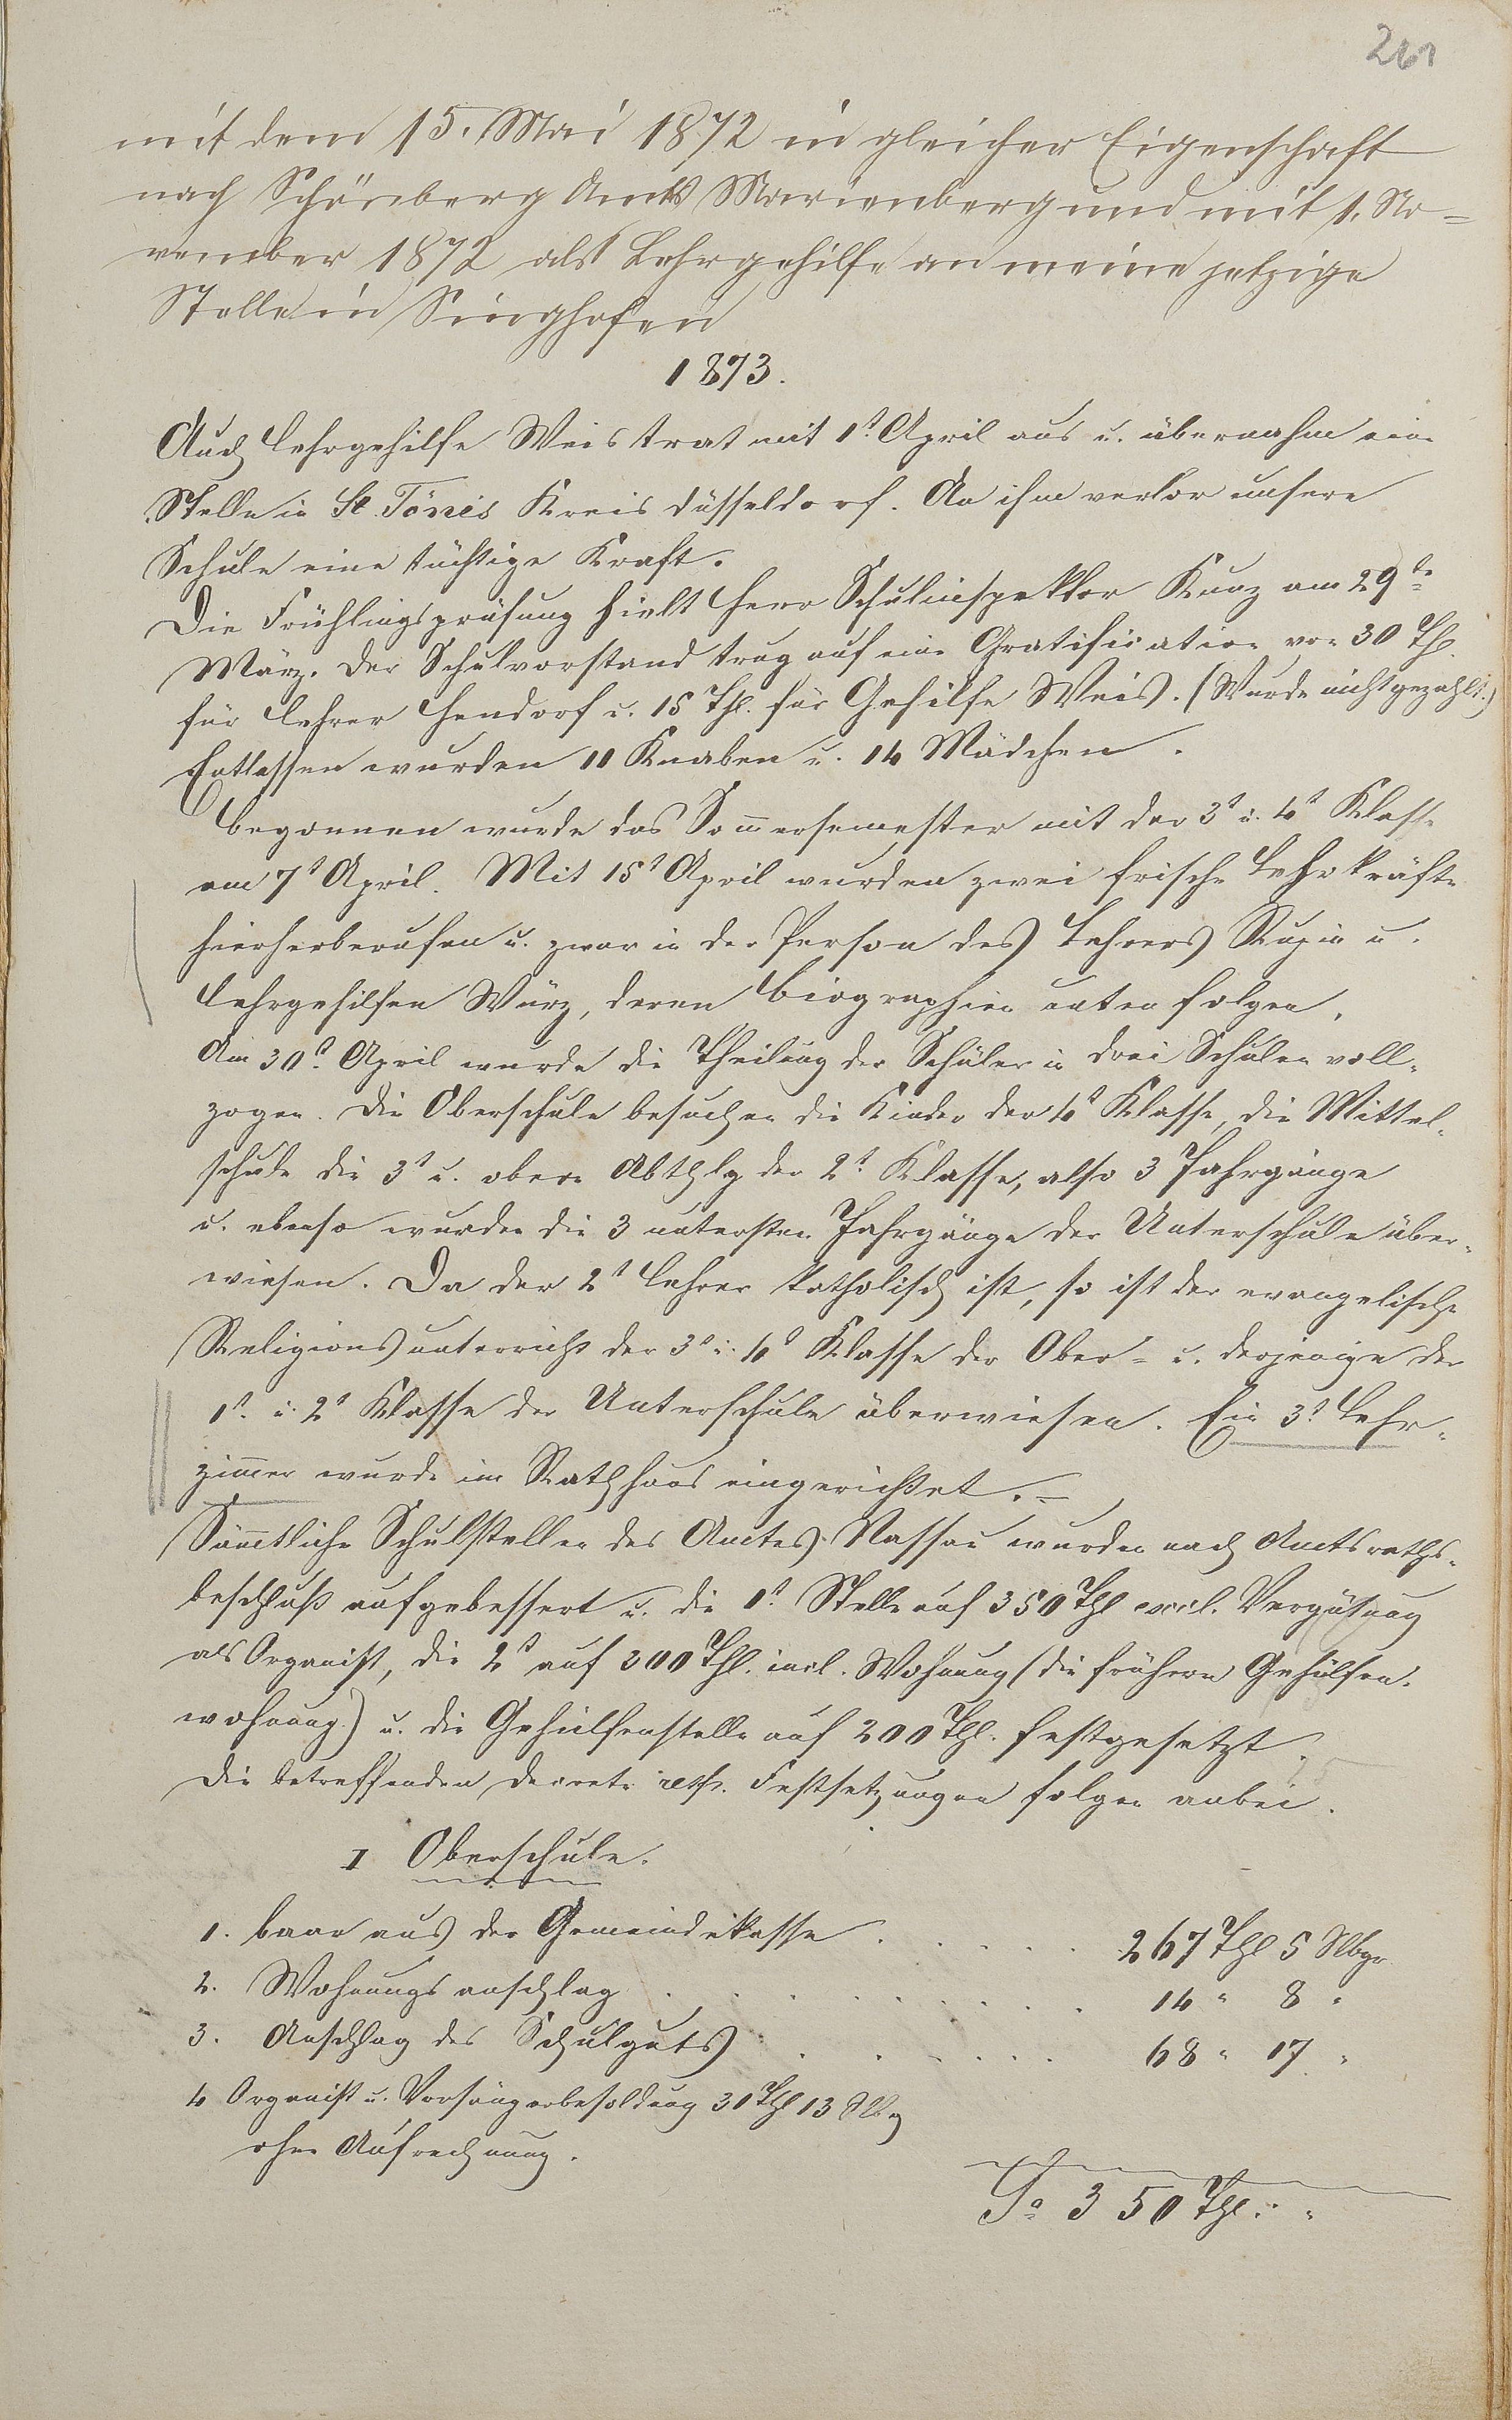 261
mit dem 15. Mai 1872 in gleicher Eigenschaft
nach Schönberg Amts Marienberg und mit 1. No-
vember 1872 als Lehrgehilfe an meine jetzige
Stelle in Singhofen
1873.
Auch Lehrgehilfe Weis trat mit 1t April aus u. übernahm eine
Stelle in St. Tönis Kreis Düsseldorf. An ihm verlor unsere
Schule eine tüchtige Kraft.
Die Frühlingsprüfung hielt Herr Schulinspektor Kunz am 29te
März. Der Schulvorstand trug auf eine Gratification von 30 Thl.
für Lehrer Hendorf u. 15 Thl. für Gehilfe Weis. (Wurde nicht gezahlt.)
Entlassen wurden 11 Knaben u. 14 Mädchen.
Begonnen wurde das Sommersemester mit der 3t u. 4t Klasse
am 7t April. Mit 15t April wurden zwei frische Lehrkräfte
hierherberufen u. zwar in der Person des Lehrers u.
Lehrgehilfen Würz, deren Biographien unten folgen.
Am 30t April wurde die Theilung der Schüler in drei Schulen voll-
zogen. Die Oberschule besuchen die Kinder der 4t Klasse, die Mittel-
schule die 3t u. obere Abthlg der 2t Klasse, also 3 Jahrgänge
u. ebenso wurden die 3 untersten Jahrgänge der Unterschule über-
wiesen. Da der 2t Lehrer katholisch ist, so ist der evangelische
Religionsunterricht der 3t u. 4t Klasse der Ober- u. derjenige der
1t u. 2t Klasse der Unterschule überwiesen. Ein 3t Lehr-
zimmer wurde im Rathhaus eingerichtet. -
Sämtliche Schulstellen des Amtes Nassau wurden nach Amtsraths-
beschluß aufgebessert u. die 1t Stelle auf 350 Thl excl. Vergütung
als Organist, die 2t auf 300 Thl. incl. Wohnung (die frühere Gehülfen-
wohnung) u. die Gehülfenstelle auf 200 Thl. festgesetzt.
Die betreffenden Decrete resp. Festsetzungen folgen anbei.
I Oberschule.
1. baar aus der Gemeindekasse . . . . . 267 Thl 5 Slbgr
2. Wohnungsanschlag . . . . . . . . 14 " 8 "
3. Anschlag des Schulguts . . . . . . 68 " 17 "
4 Organist u. Vorsängerbesoldung 31 Thl 13 Slbg
ohne Aufrechnung.
Sa 350 Thl. " "